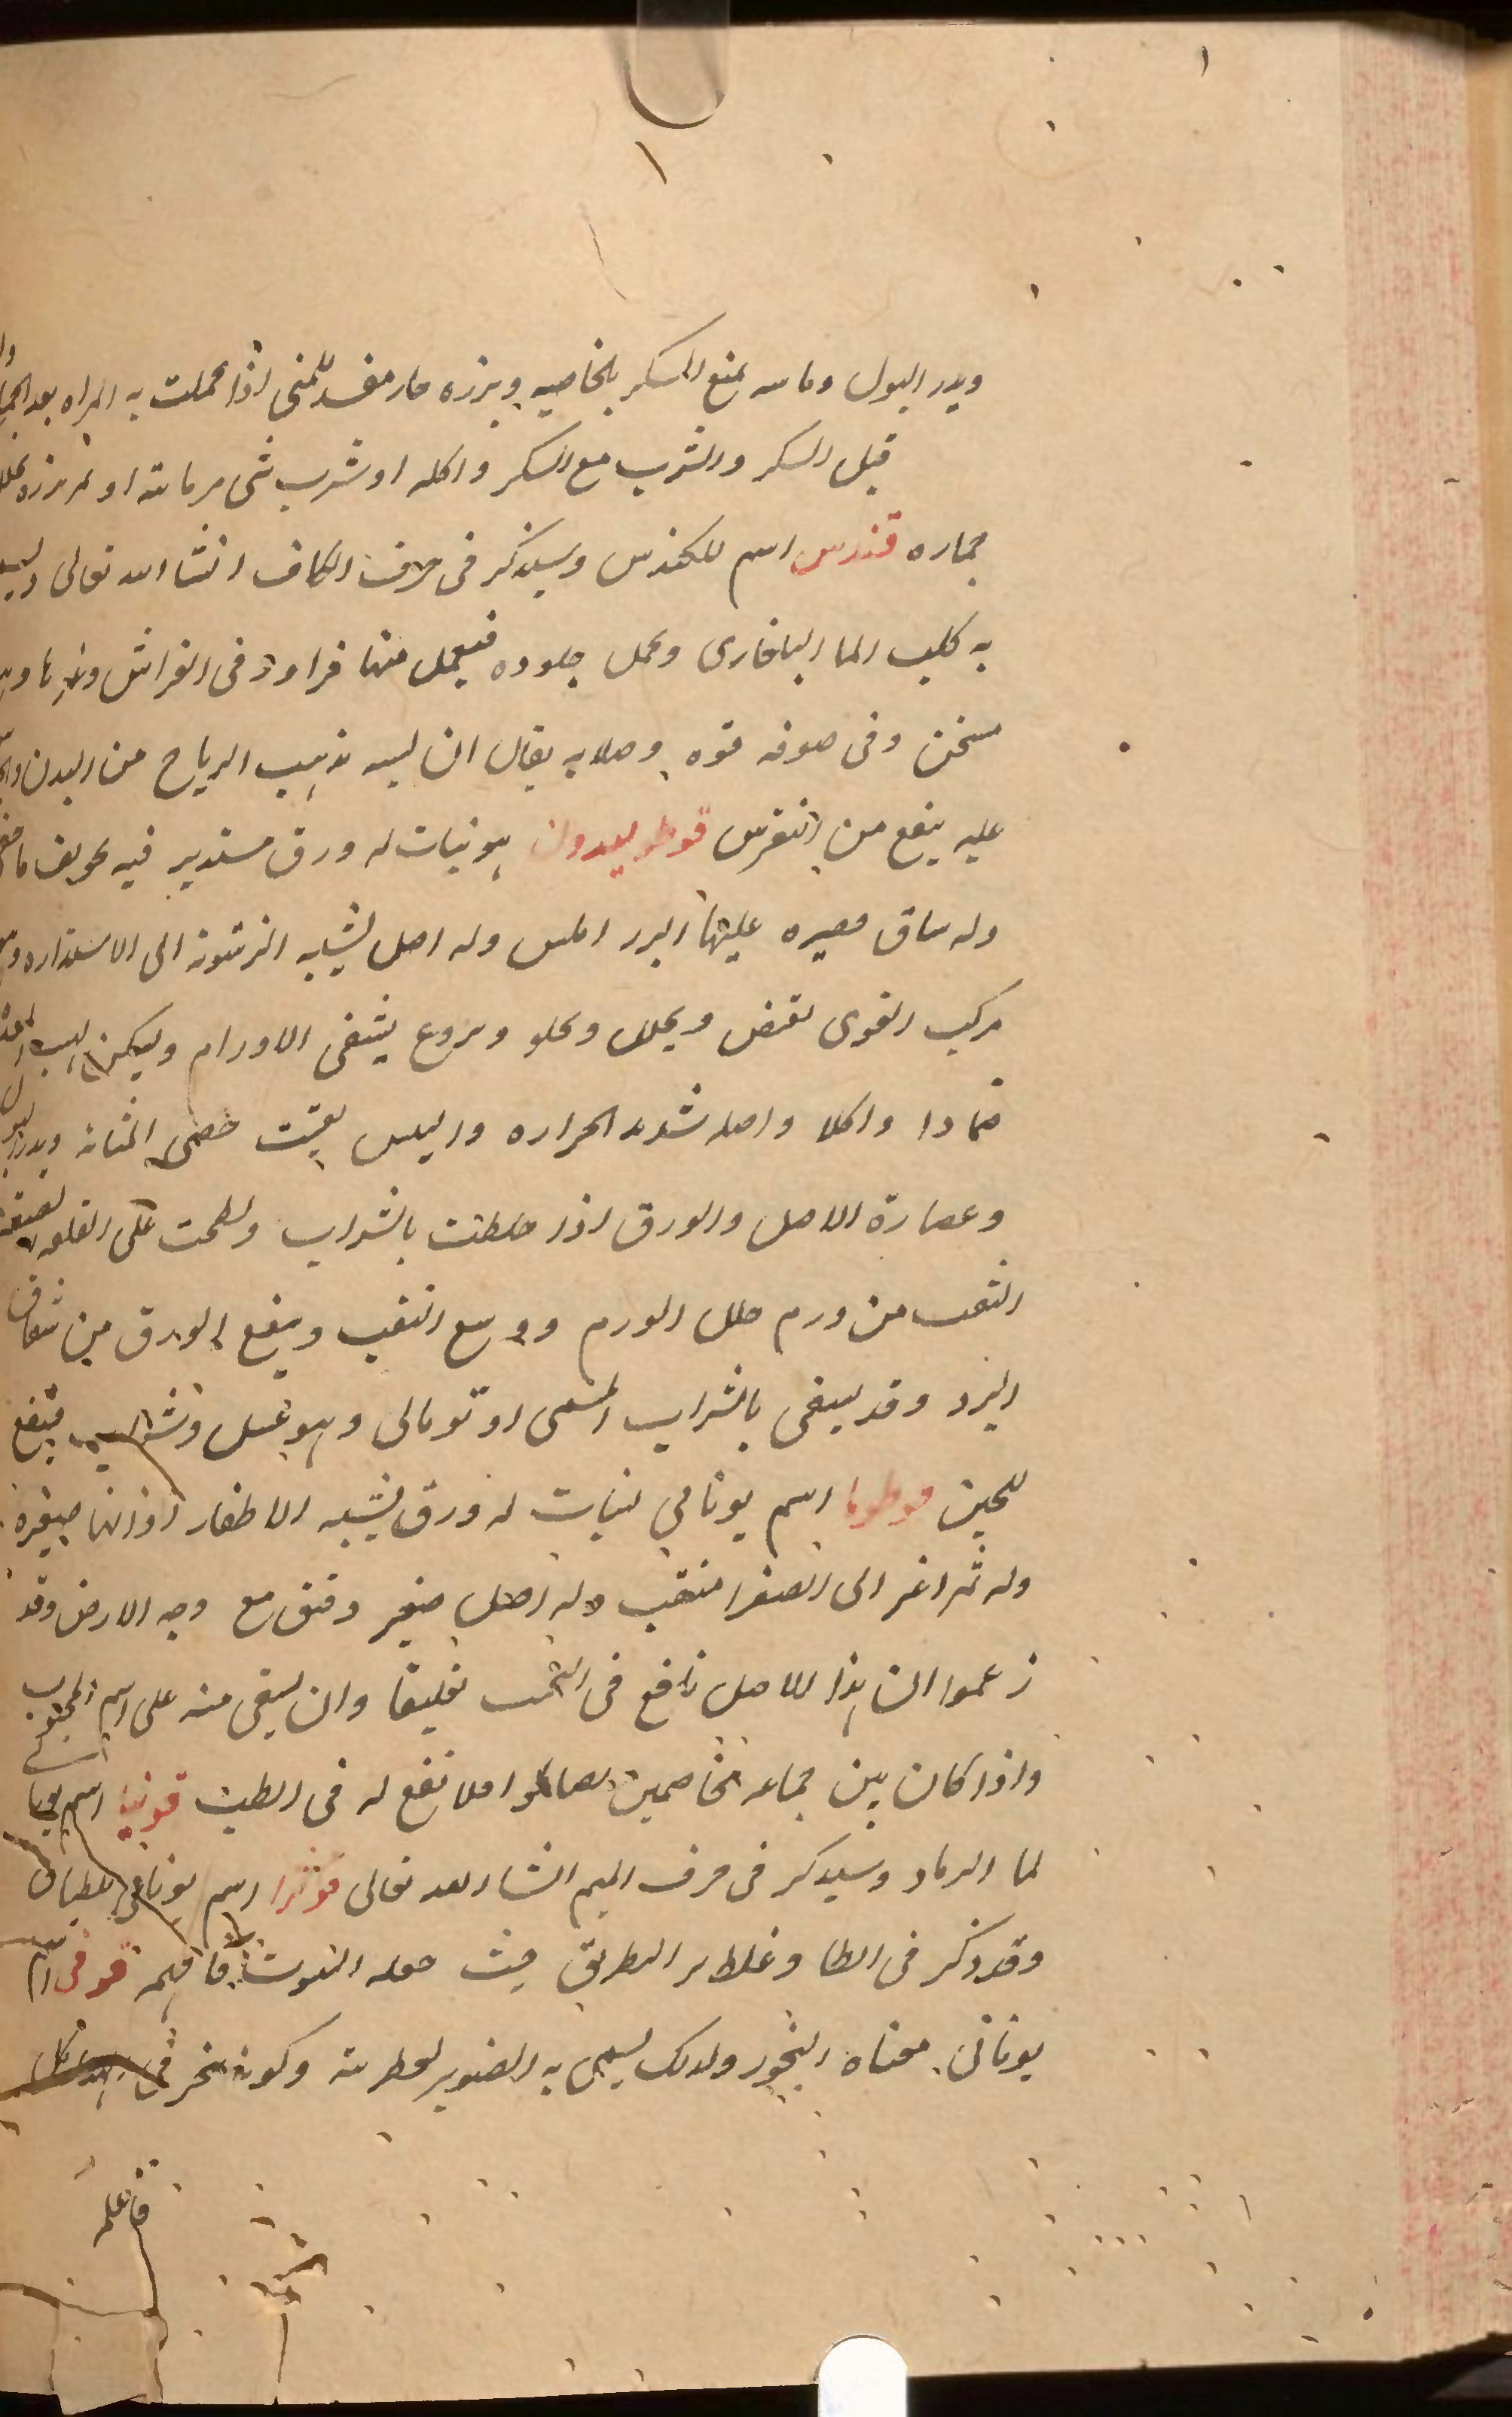 ويدر البول وماه يمنع السكر بالخاصيه وبزره حار مفسد للمنى اذا تحملت به المراه بعد
قبل السكر والشرب مع السكر واكله او شرب شى من مائه او بزره
جماره قندس اسم للكندس وسيذكر فى حرف الكاف انشا الله تعالى
به كلب الما البلغارى وتحمل جلوده فيعمل منها فراوى فى الفراش وغيرها
مسخن وفى صوفه قوه وصلابه يقال ان لبسه تذهب الرياح من البدن
عليه ينفع من النقرس قوطوليدون هو نبات له ورق مستدير فيه تجويف ما
وله ساق قصيره عليها البزر املس وله اصل يشبه الزيتونه الى الاستداره
مركب القوى تقبض ويحلل ويجلو ويردع يشفى الاورام ويسكن لهيب المعده
ضمادا واكلا واصله شديد الحراره واليبس يفتت حصى المثانه ويدر البول
وعصارة الاصل والورق اذا خلطت بالشراب ولطخت على القلفه لضيقه
الثقب من ورم حلل الورم ووسع الثقب وينفع الورق من شقاق
البرد وقد يسقى بالشراب المسمى اوتومالى وهو عسل وشراب فينفع
للجبن قوطوما اسم يونانى لنبات له ورق يشبه الاظفار الا انها صغيره
وله ثمر اغبر الى الصفرا مثقب وله اصل صغير دقيق مع وجه الارض وقد
زعموا ان هذا الاصل نافع فى المحبه تعليقا وان يسقى منه على اسم المحبوب
واذا كان بين جماعه متخاصمين تصالحوا ولا نفع له فى الطب قونيا اسم يونانى
لما الرماد وسيذكر فى حرف الميم انشا الله تعالى قوثرا اسم يونانى للطباق
وقد ذكر فى الطا وغلط بر البطريق حيث جعله النبوت فافهمه قوفى اسم
يونانى معناه البخور ولذلك يسمى به الصنوبر لعطريته وكونه يبخر فى
فاعلم